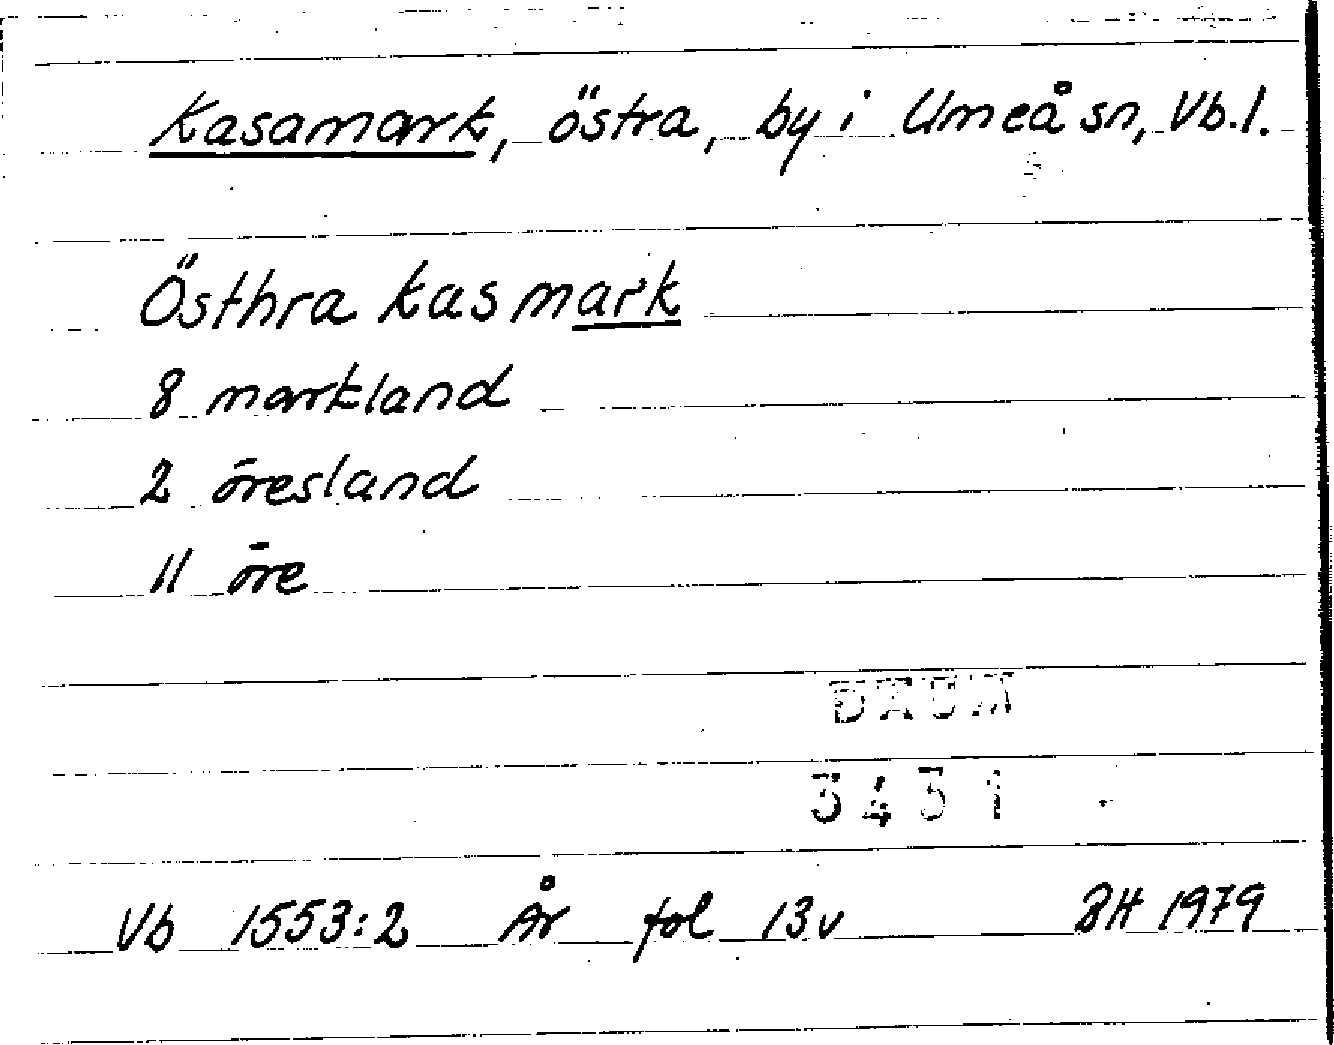 Kasamark, östra, by i Umeå sn, Vb.l.
Östhra kasmark
8 markland
2 öresland
11 öre
DAUM
3431
Vb 1553:2 År fol 13v BH 1979